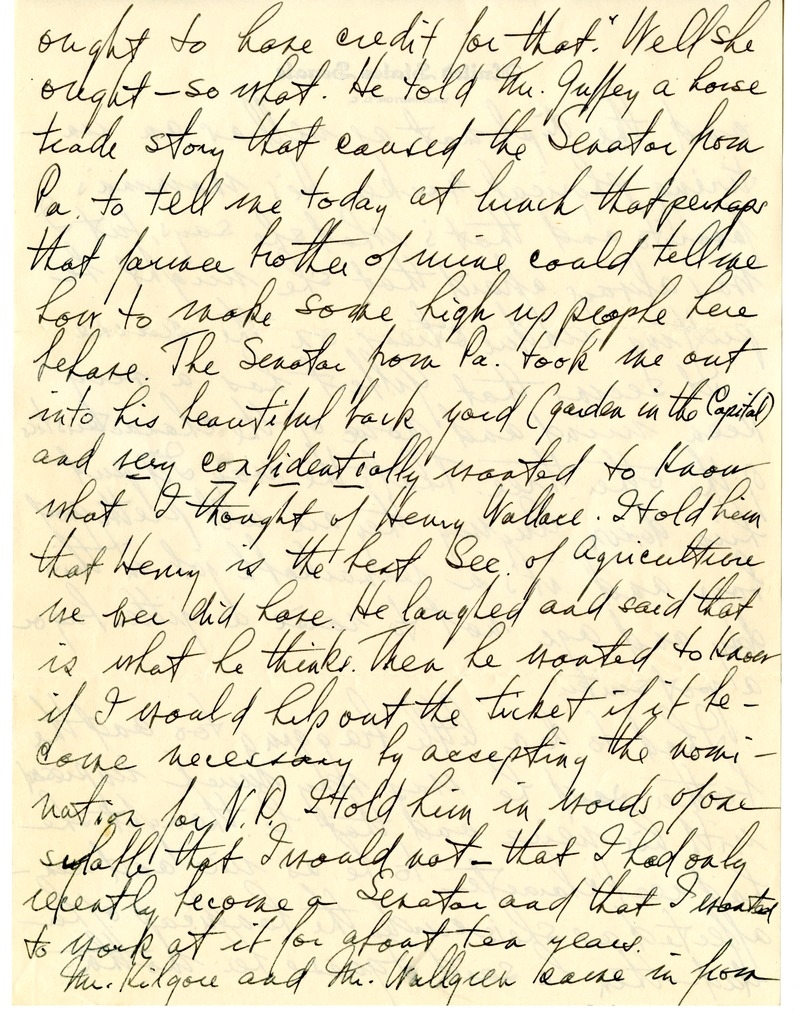 ought to have credit for that." Well she
ought – so what. He told Mr. Guffey a horse
trade story that caused the Senator from
Pa. to tell me today at lunch that perhaps
that farmer brother of mine could tell me
how to make some high up people here
behave. The Senator from Pa. took me out
into his beautiful back yard (garden in the Capital)
and very confidentially wanted to know
what I thought of Henry Wallace. I told him
that Henry is the best Sec. of Agriculture
we ever did have. He laughed and said that
is what he thinks. Then he wanted to know
if I would help out the ticket if it be-
come necessary by accepting the nomi-
nation for V.P. I told him in words of one
sylable that I would not – that I had only
recently become a Senator and that I wanted
to work at it for about ten years.
Mr. Kilgore and Mr. Wallgren came in from